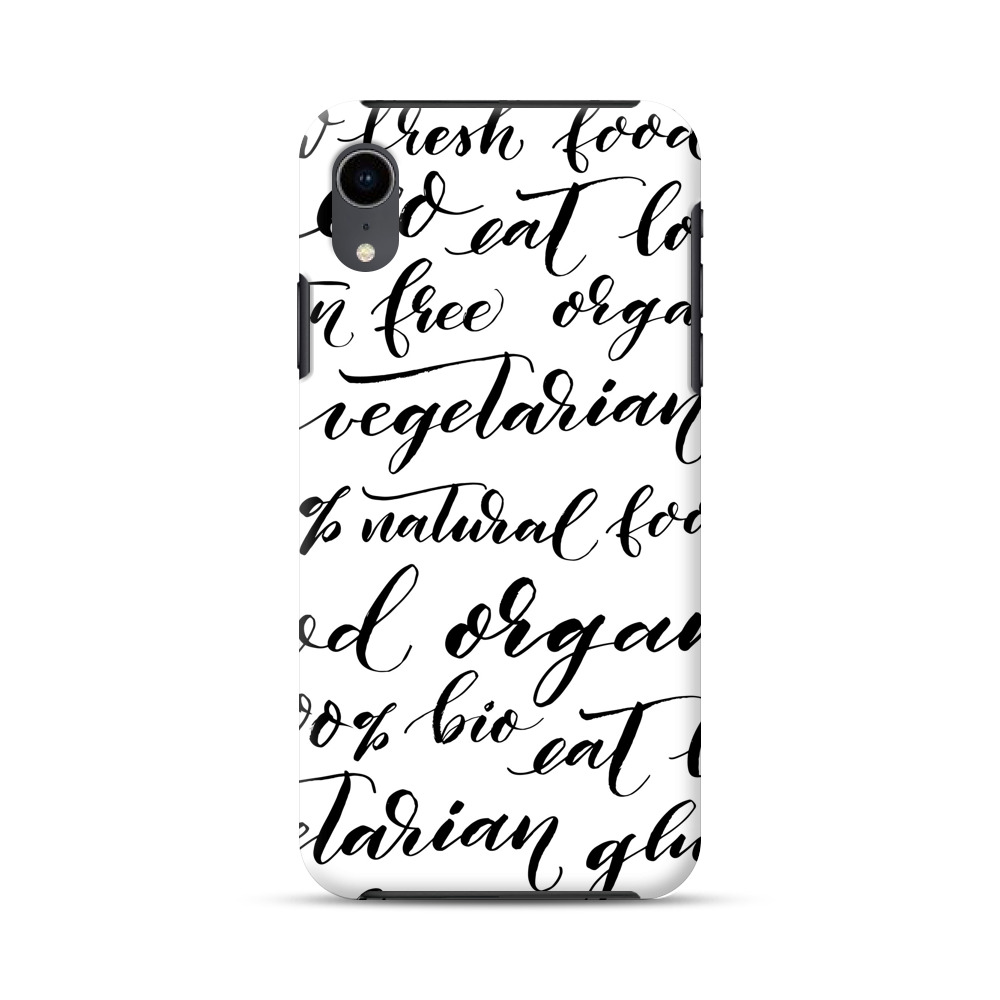 fresh food
eat lo
n free orga
vegetarian
% natural foo
od organ
00% bio
eat l
etarian glu